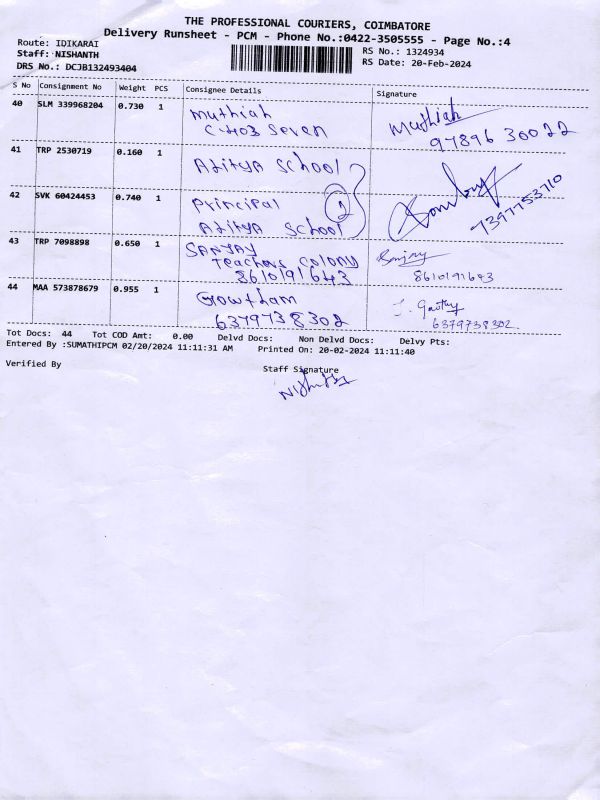 THE PROFESSIONAL COURIERS, COIMBATORE
Delivery Runsheet - PCM - Phone No.:0422-3505555 - Page No.:4
Route: IDIKARAI
Staff: NISHANTH
DRS No.: DCJB132493404
RS No.: 1324934
RS Date: 20-Feb-2024
S No Consignment No Weight PCS Consignee Details Signature
40 SLM 339968204 0.730 1 Muthiah Muthiah
C403 Seven 97896 30022
41 TRP 2530719 0.160 1 Aditya School
42 SVK 60424453 0.740 1 Principal 2
Aditya School 7397753710
43 TRP 7098898 0.650 1 SANJAY Sanjay
Teachers Colony
8610191643 8610191643
44 MAA 573878679 0.955 1 Gowtham
6379738302 6379738302.
Tot Docs: 44 Tot COD Amt: 0.00 Delvd Docs: Non Delvd Docs: Delvy Pts:
Entered By :SUMATHIPCM 02/20/2024 11:11:31 AM Printed On: 20-02-2024 11:11:40
Verified By Staff Signature